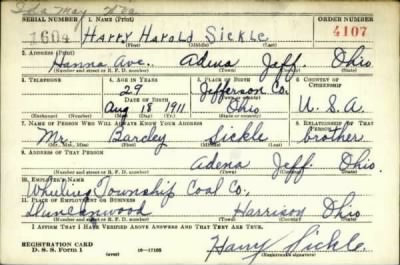 Ida May
SERIAL NUMBER 1. NAME (Print) ORDER NUMBER
1604 Harry Harold Sickle 4107
2. ADDRESS (Print)
Hanna Ave. Adena Jeff. Ohio
(Number and street or R. F. D. number) (Town) (County) (State)
3. TELEPHONE 4. AGE IN YEARS 5. PLACE OF BIRTH 6. COUNTRY OF CITIZENSHIP
29 Jefferson Co.
DATE OF BIRTH
Aug 18 1911 Ohio U. S. A
(Exchange) (Number) (Mo.) (Day) (Yr.) (State or country)
7. NAME OF PERSON WHO WILL ALWAYS KNOW YOUR ADDRESS 8. RELATIONSHIP OF THAT PERSON
Mr. Barcley Sickle brother
(Mr., Mrs., Miss) (First) (Middle) (Last)
9. ADDRESS OF THAT PERSON
Adena Jeff. Ohio.
(Number and street or R. F. D. number) (Town) (County) (State)
10. EMPLOYER'S NAME
Township Coal Co.
11. PLACE OF EMPLOYMENT OR BUSINESS
Duncanwood Harrison Ohio
(Number and street or R. F. D. number) (Town) (County) (State)
I AFFIRM THAT I HAVE VERIFIED ABOVE ANSWERS AND THAT THEY ARE TRUE.
REGISTRATION CARD
D. S. S. Form 1 (over) 16-17105
Harry Sickle.
(Registrant's signature)